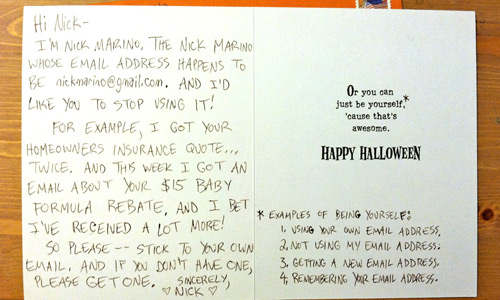 Hi Nick-
I'M NICK MARINO. THE NICK MARINO
WHOSE EMAIL ADDRESS HAPPENS TO
BE nickmarino@gmail.com. AND I'D
LIKE YOU TO STOP USING IT!
FOR EXAMPLE, I GOT YOUR
HOMEOWNERS INSURANCE QUOTE...
TWICE. AND THIS WEEK I GOT AN
EMAIL ABOUT YOUR $15 BABY
FORMULA REBATE, AND I BET
I'VE RECEIVED A LOT MORE!
SO PLEASE -- STICK TO YOUR OWN
EMAIL. AND IF YOU DON'T HAVE ONE,
PLEASE GET ONE. SINCERELY,
♡ NICK ♡
Or you can
just be yourself,*
'cause that's
awesome.
HAPPY HALLOWEEN
* EXAMPLES OF BEING YOURSELF:
1. USING YOUR OWN EMAIL ADDRESS.
2. NOT USING MY EMAIL ADDRESS.
3. GETTING A NEW EMAIL ADDRESS.
4. REMEMBERING YOUR EMAIL ADDRESS.